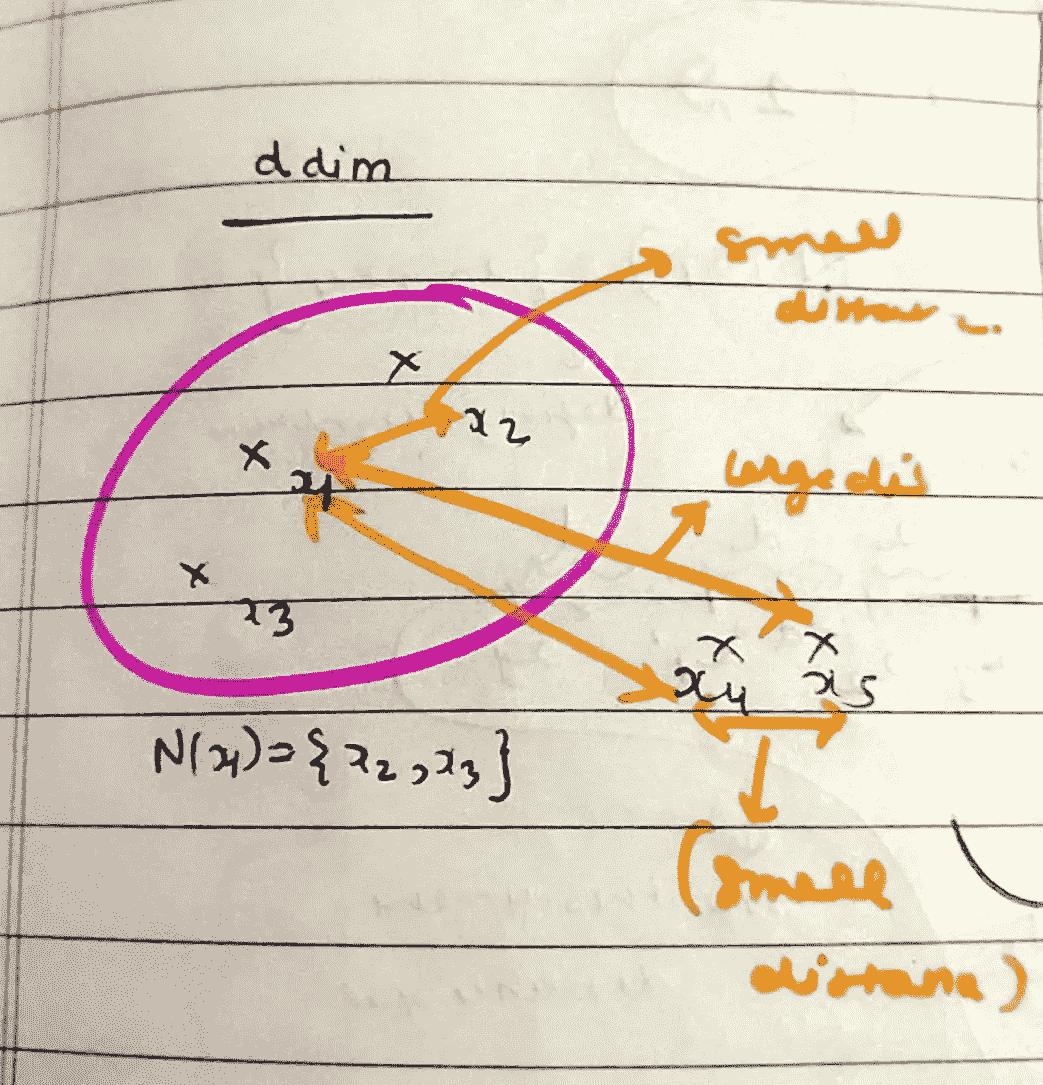 d dim
small
distance.
x2
large dis
x1
x3
x4 x5
N(x1)={x2,x3}
(small
distance)